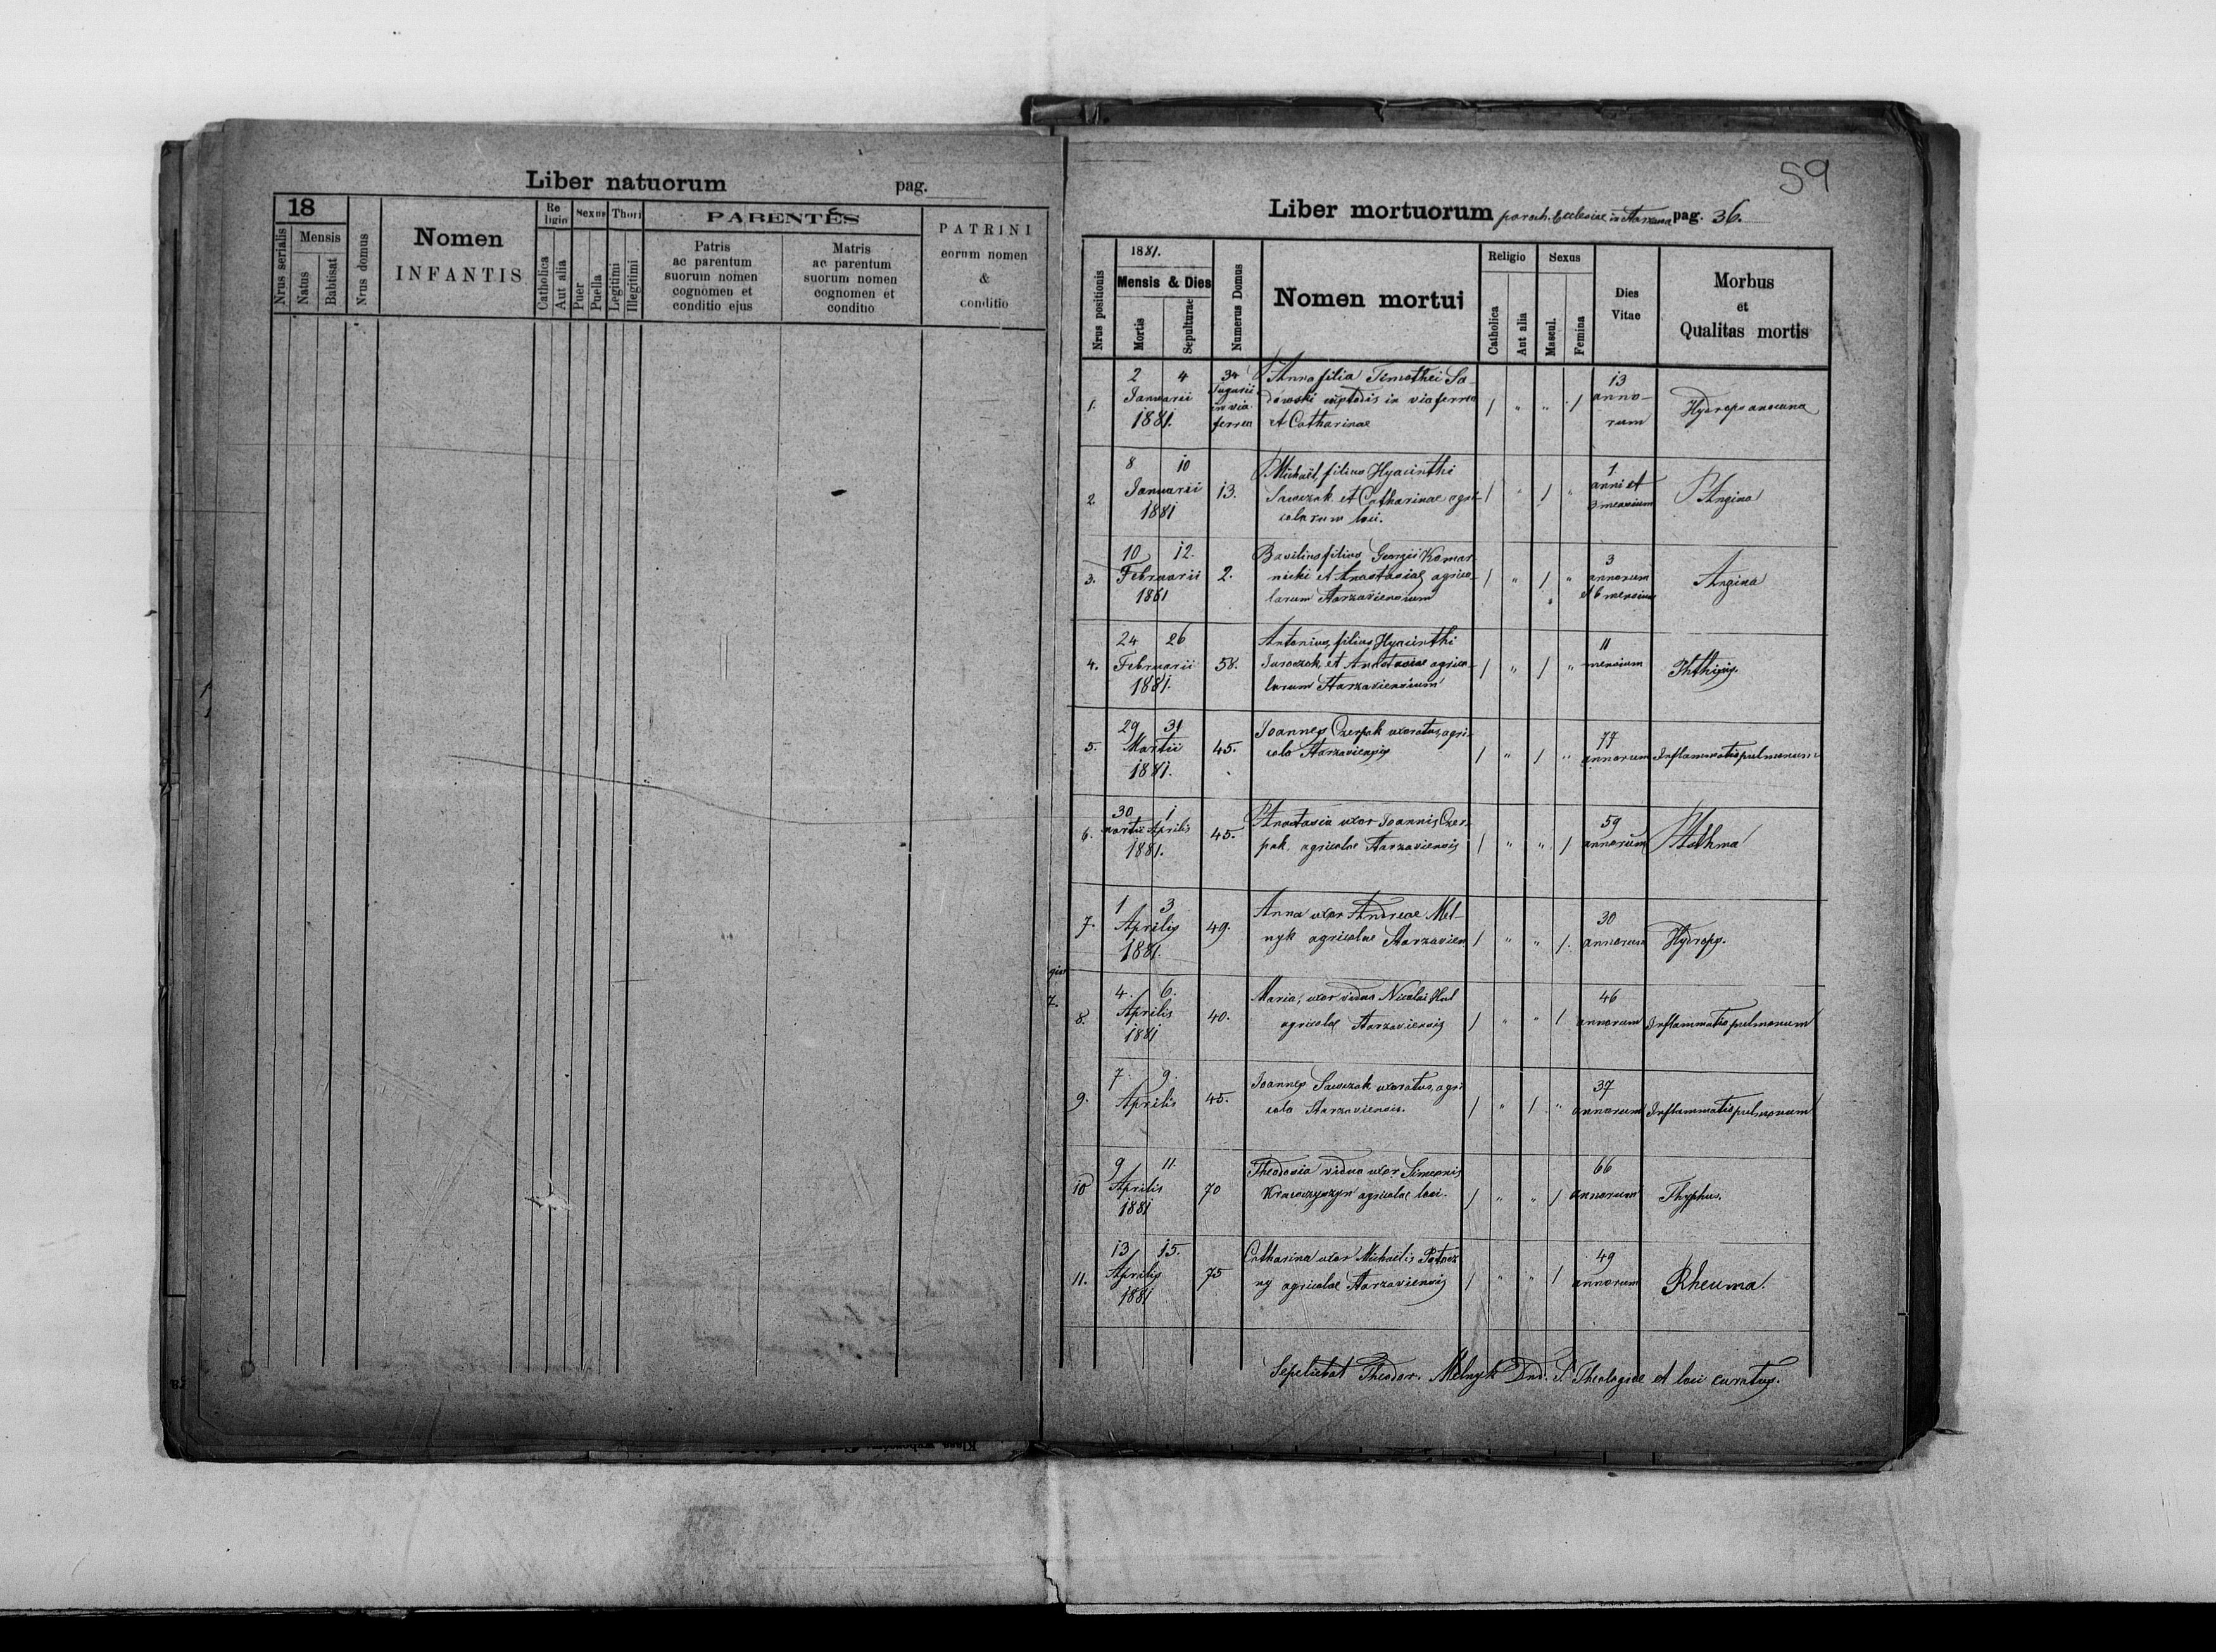 Liber natuorum pag.
18
Nrus serialis
Mensis
Natus
Babtisat
Nrus domus
Nomen
INFANTIS
Religio
Catholica
Aut alia
Sexus
Puer
Puella
Thori
Legitimi
Illegitimi
PARENTES
Patris
ac parentum
suorum nomen
cognomen et
conditio ejus
Matris
ac parentum
suorum nomen
cognomen et
conditio
PATRINI
eorum nomen
&
conditio
59
Liber mortuorum paroch. Ecclesiae in Starzawa pag. 36.
Nrus positionis
1881.
Mensis & Dies
Mortis
Sepulturae
Numerus Domus
Nomen mortui
Religio
Catholica
Aut alia
Sexus
Mascul.
Femina
Dies
Vitae
Morbus
et
Qualitas mortis
1.
2 4
Januarii
1881.
34
in via
ferrea
Anna filia Timothei Sa-
dowski custodis in via ferrea
et Catharinae
/ " " /
13
anno-
rum
Hydrops
2
8 10
Januarii
1881
13.
Michaël, filius Hyacinthi
Sawczak et Catharinae agri-
colarum loci.
/ " / "
1
anni et
3 mensium
Angina
3.
10 12.
Februarii
1881
2.
Basilius filius Georgii Komar-
nicki et Anastasiae agrico-
larum Starzaviensium
/ " / "
3
annorum
et 6 mensium
Angina
4.
24 26
Februarii
1881.
58.
Antonius, filius Hyacinthi
Jurczak et Anastasiae agrico-
larum Starzaviensium
/ " / "
11
mensium
Phthisis.
5.
29 31
Martii
1881.
45.
Joannes Czerpak uxoratus, agri-
cola Starzaviensis
/ " / "
77
annorum
Inflammatio pulmonum
6.
30 1
martii Aprilis
1881.
45.
Anastasia uxor Joannis Czer-
pak. agricolae Starzaviensis
/ " " /
59
annorum
Asthma
7.
1 3
Aprilis
1881.
49.
Anna uxor Andreae Mel-
nyk agricolae Starzavien
/ " " /
30
annorum
Hydrops.
7.
8.
4. 6.
Aprilis
1881
40.
Maria, uxor vidua Nicolai Hul
agricolae Starzaviensis
/ " " /
46
annorum
Inflammatio pulmonum
9.
7. 9.
Aprilis
45.
Joannes Sawczak uxoratus, agri
cola Starzaviensis.
/ " / "
37
annorum
Inflammatio pulmonum
10
9 11.
Aprilis
1881
70
Theodosia vidua uxor Simeonis
Krawczyszyn agricolae loci.
/ " " /
66
annorum
Thyphus.
11.
13 15.
Aprilis
1881
75
Catharina uxor Michaëlis Potocz
ny agricolae Starzaviensis
/ " " /
49
annorum
Rheuma.
Sepeliebat Theodor. Melnyk Dnd. S. Theologiae et loci curatus.